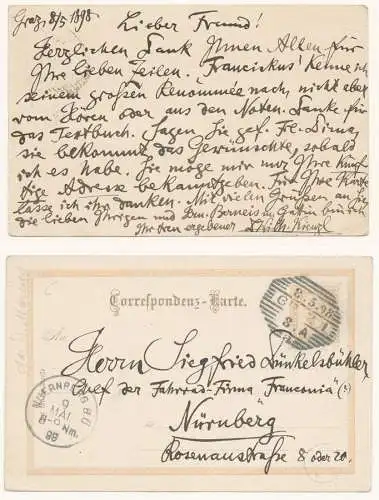 Graz, 8/5 1898
Lieber Freund!
Herzlichen Dank Ihnen Allen für
Ihre lieben Zeilen. „Franciskus" kenne ich
seinem großen Renommée nach, nicht aber
vom Hören oder aus den Noten. Danke für
das Textbuch. Sagen Sie gef. Frl. Dima,
sie bekommt das Gewünschte, sobald
ich es habe. Sie möge mir nur Ihre künf-
tige Adresse bekanntgeben. Für Ihre Karte
lasse ich ihr danken. Mit vielen Grüßen an Sie,
die lieben Ihrigen und Dr. Berneis u. Gattin bin ich
Ihr treu ergebener Dr Wilh. Kienzl
Correspondenz-Karte.
8.5.98
Herrn Siegfried Dünkelsbühler
Chef der Fahrrad-Firma „Franconia" (?)
Nürnberg
Rosenaustraße 8 oder 20.
NUERNBERG
9
MAI
8-9 Nm.
98